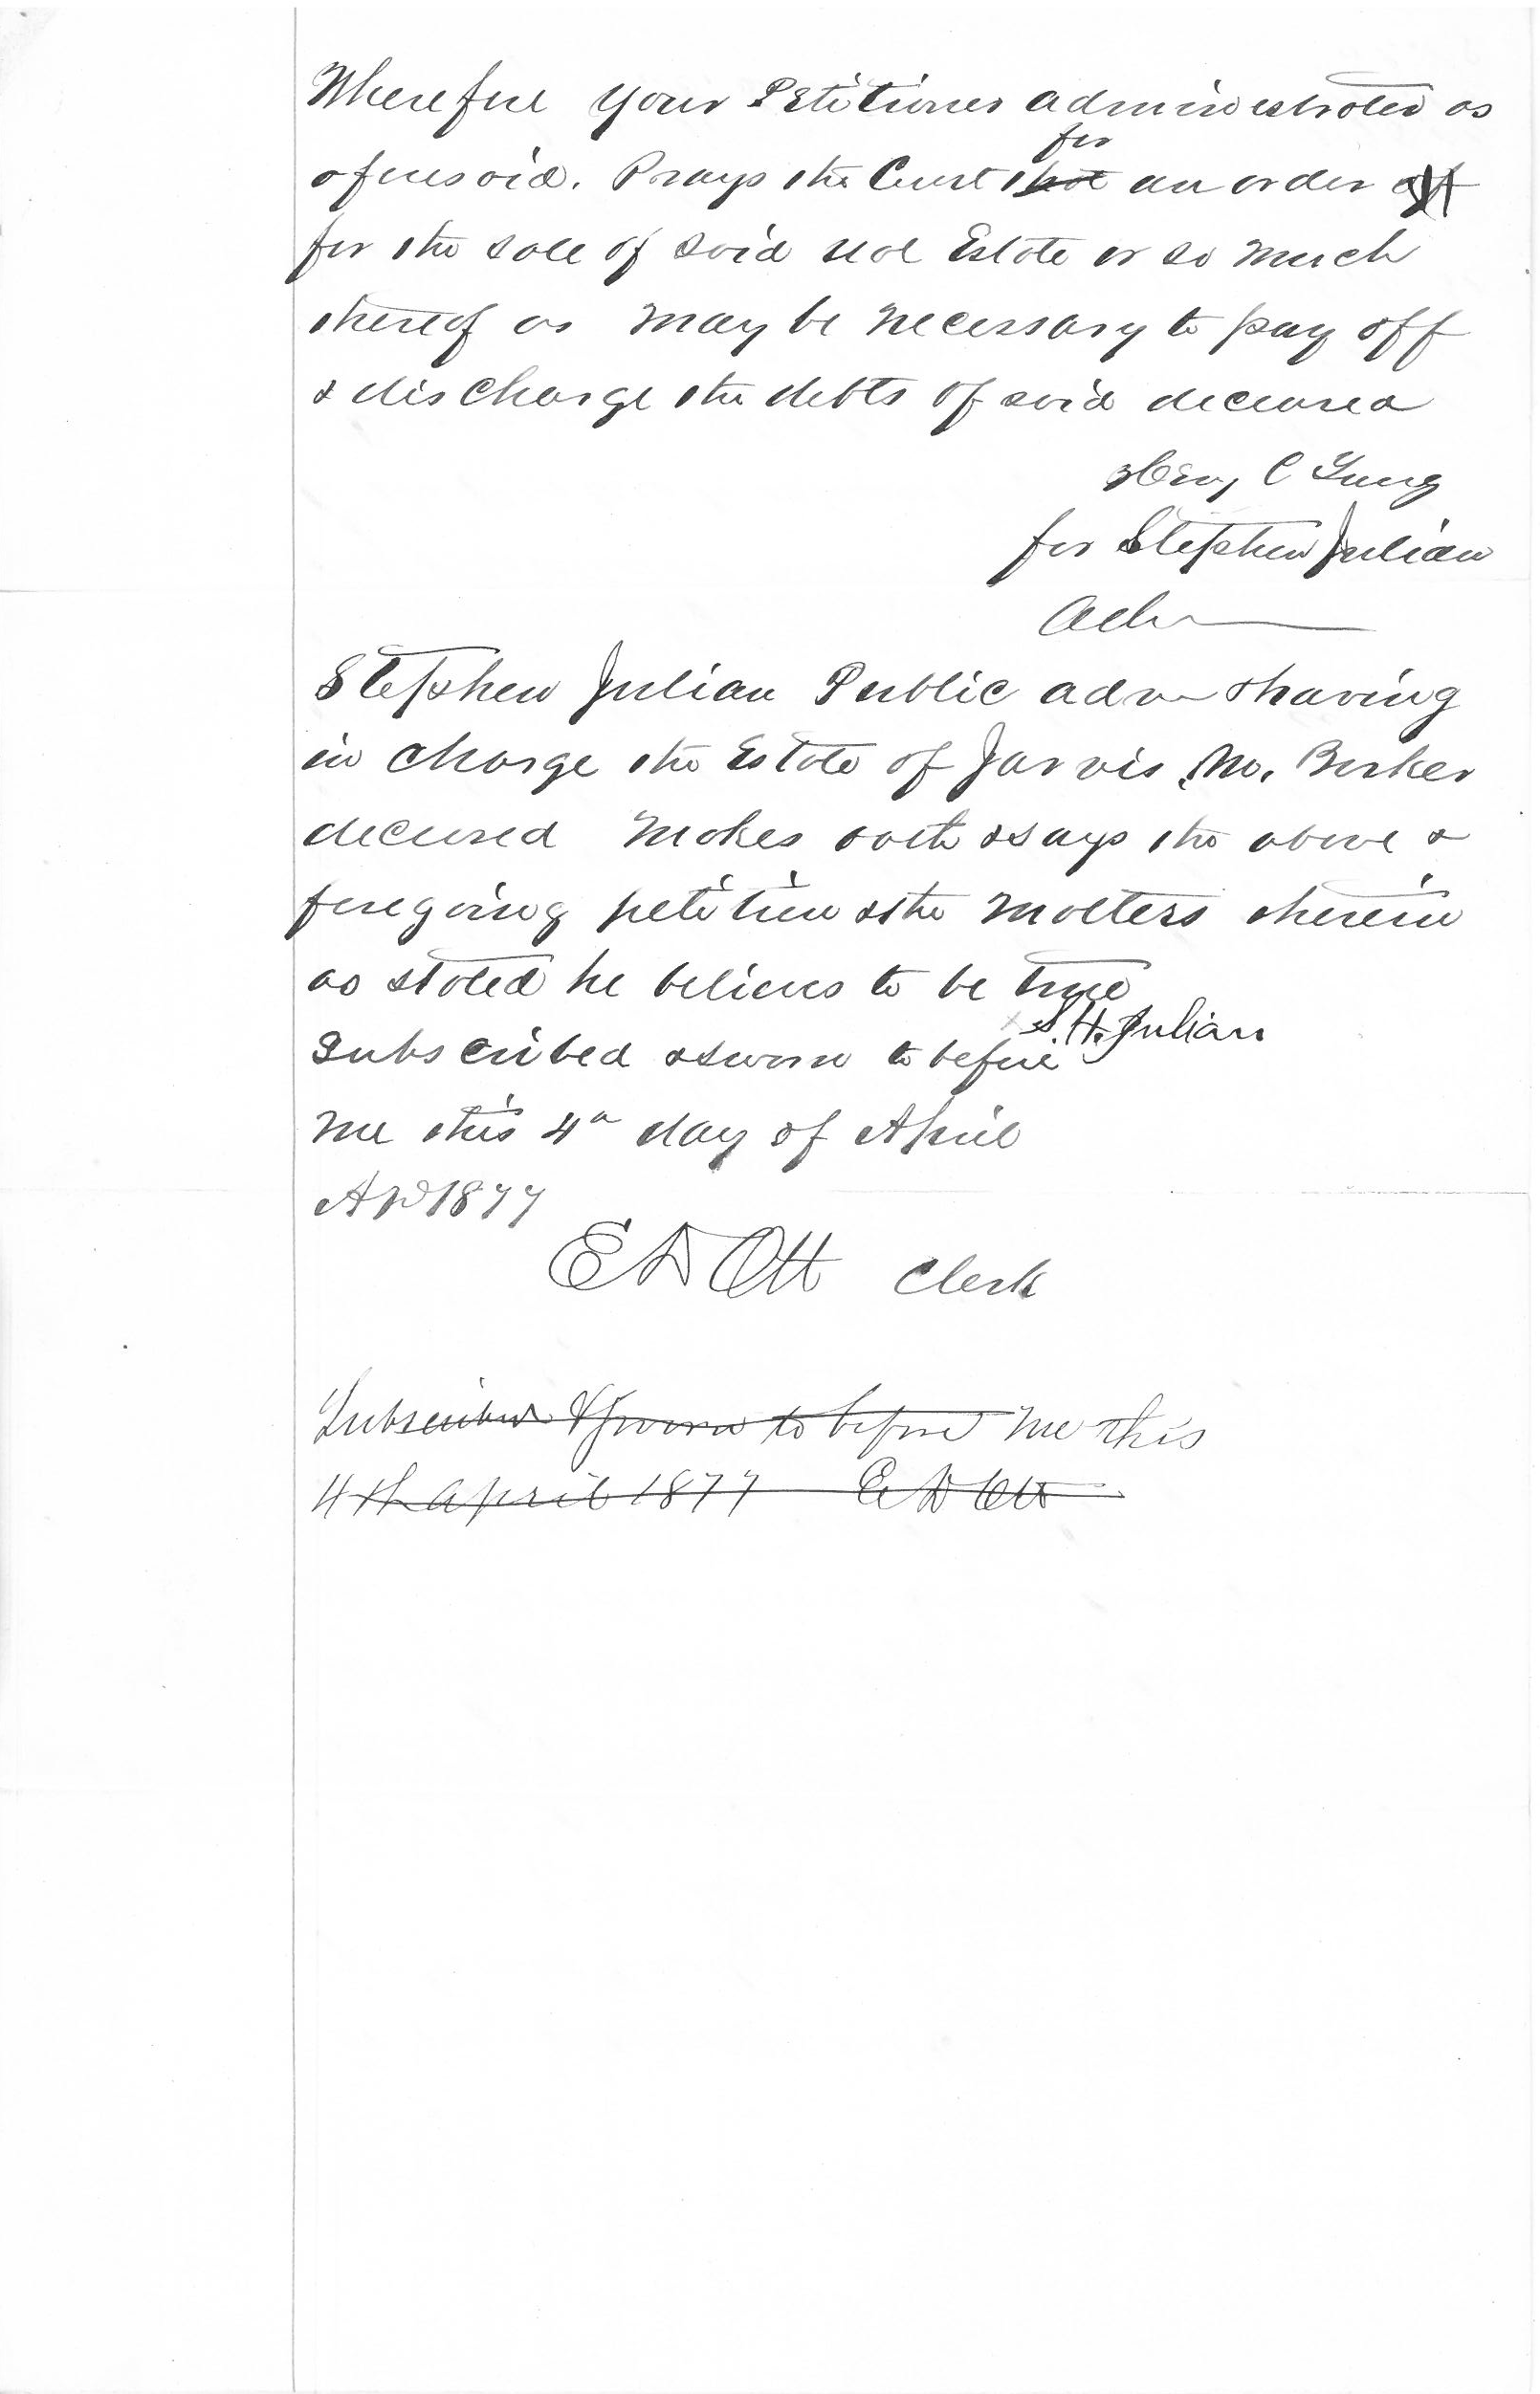 Wherefore your Petitioner administrator as
aforesaid. Prays the Court that for an order
for the sale of said real Estate or so much
thereof as may be necessary to pay off
& discharge the debts of said deceased
Henry C Young
for Stephen Julian
Adm
Stephen Julian Public adm & having
in charge the Estate of Jarvis M. Barker
deceased makes oath & says the above &
foregoing petition & the matters therein
as stated he believes to be true
S. H. Julian
Subscribed & sworn to before
me this 4th day of April
AD 1877
E D Ott Clerk
Subscribed & sworn to before me this
4th April 1877 E D Ott